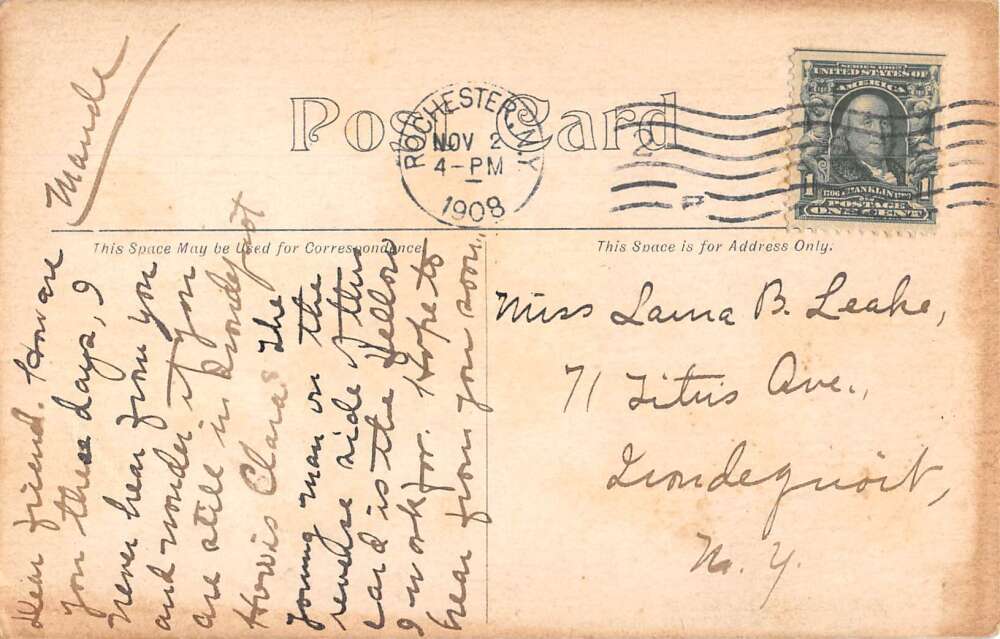 Post Card
ROCHESTER, N.Y.
NOV 2
4-PM
1908
2
SERIES 1902
UNITED STATES OF
AMERICA
1 1706 FRANKLIN 1790 1
POSTAGE
ONE CENT
This Space May be Used for Correspondence.
This Space is for Address Only.
Dear friend. How are
you these days, I
never hear from you
and wonder if you
are still in Irondequoit
How is Clara? The
young man on the
reverse side of this
card is the fellow
I work for. Hope to
hear from you soon,
Maude
Miss Laura B. Leake,
71 Titus Ave.,
Irondequoit,
N. Y.